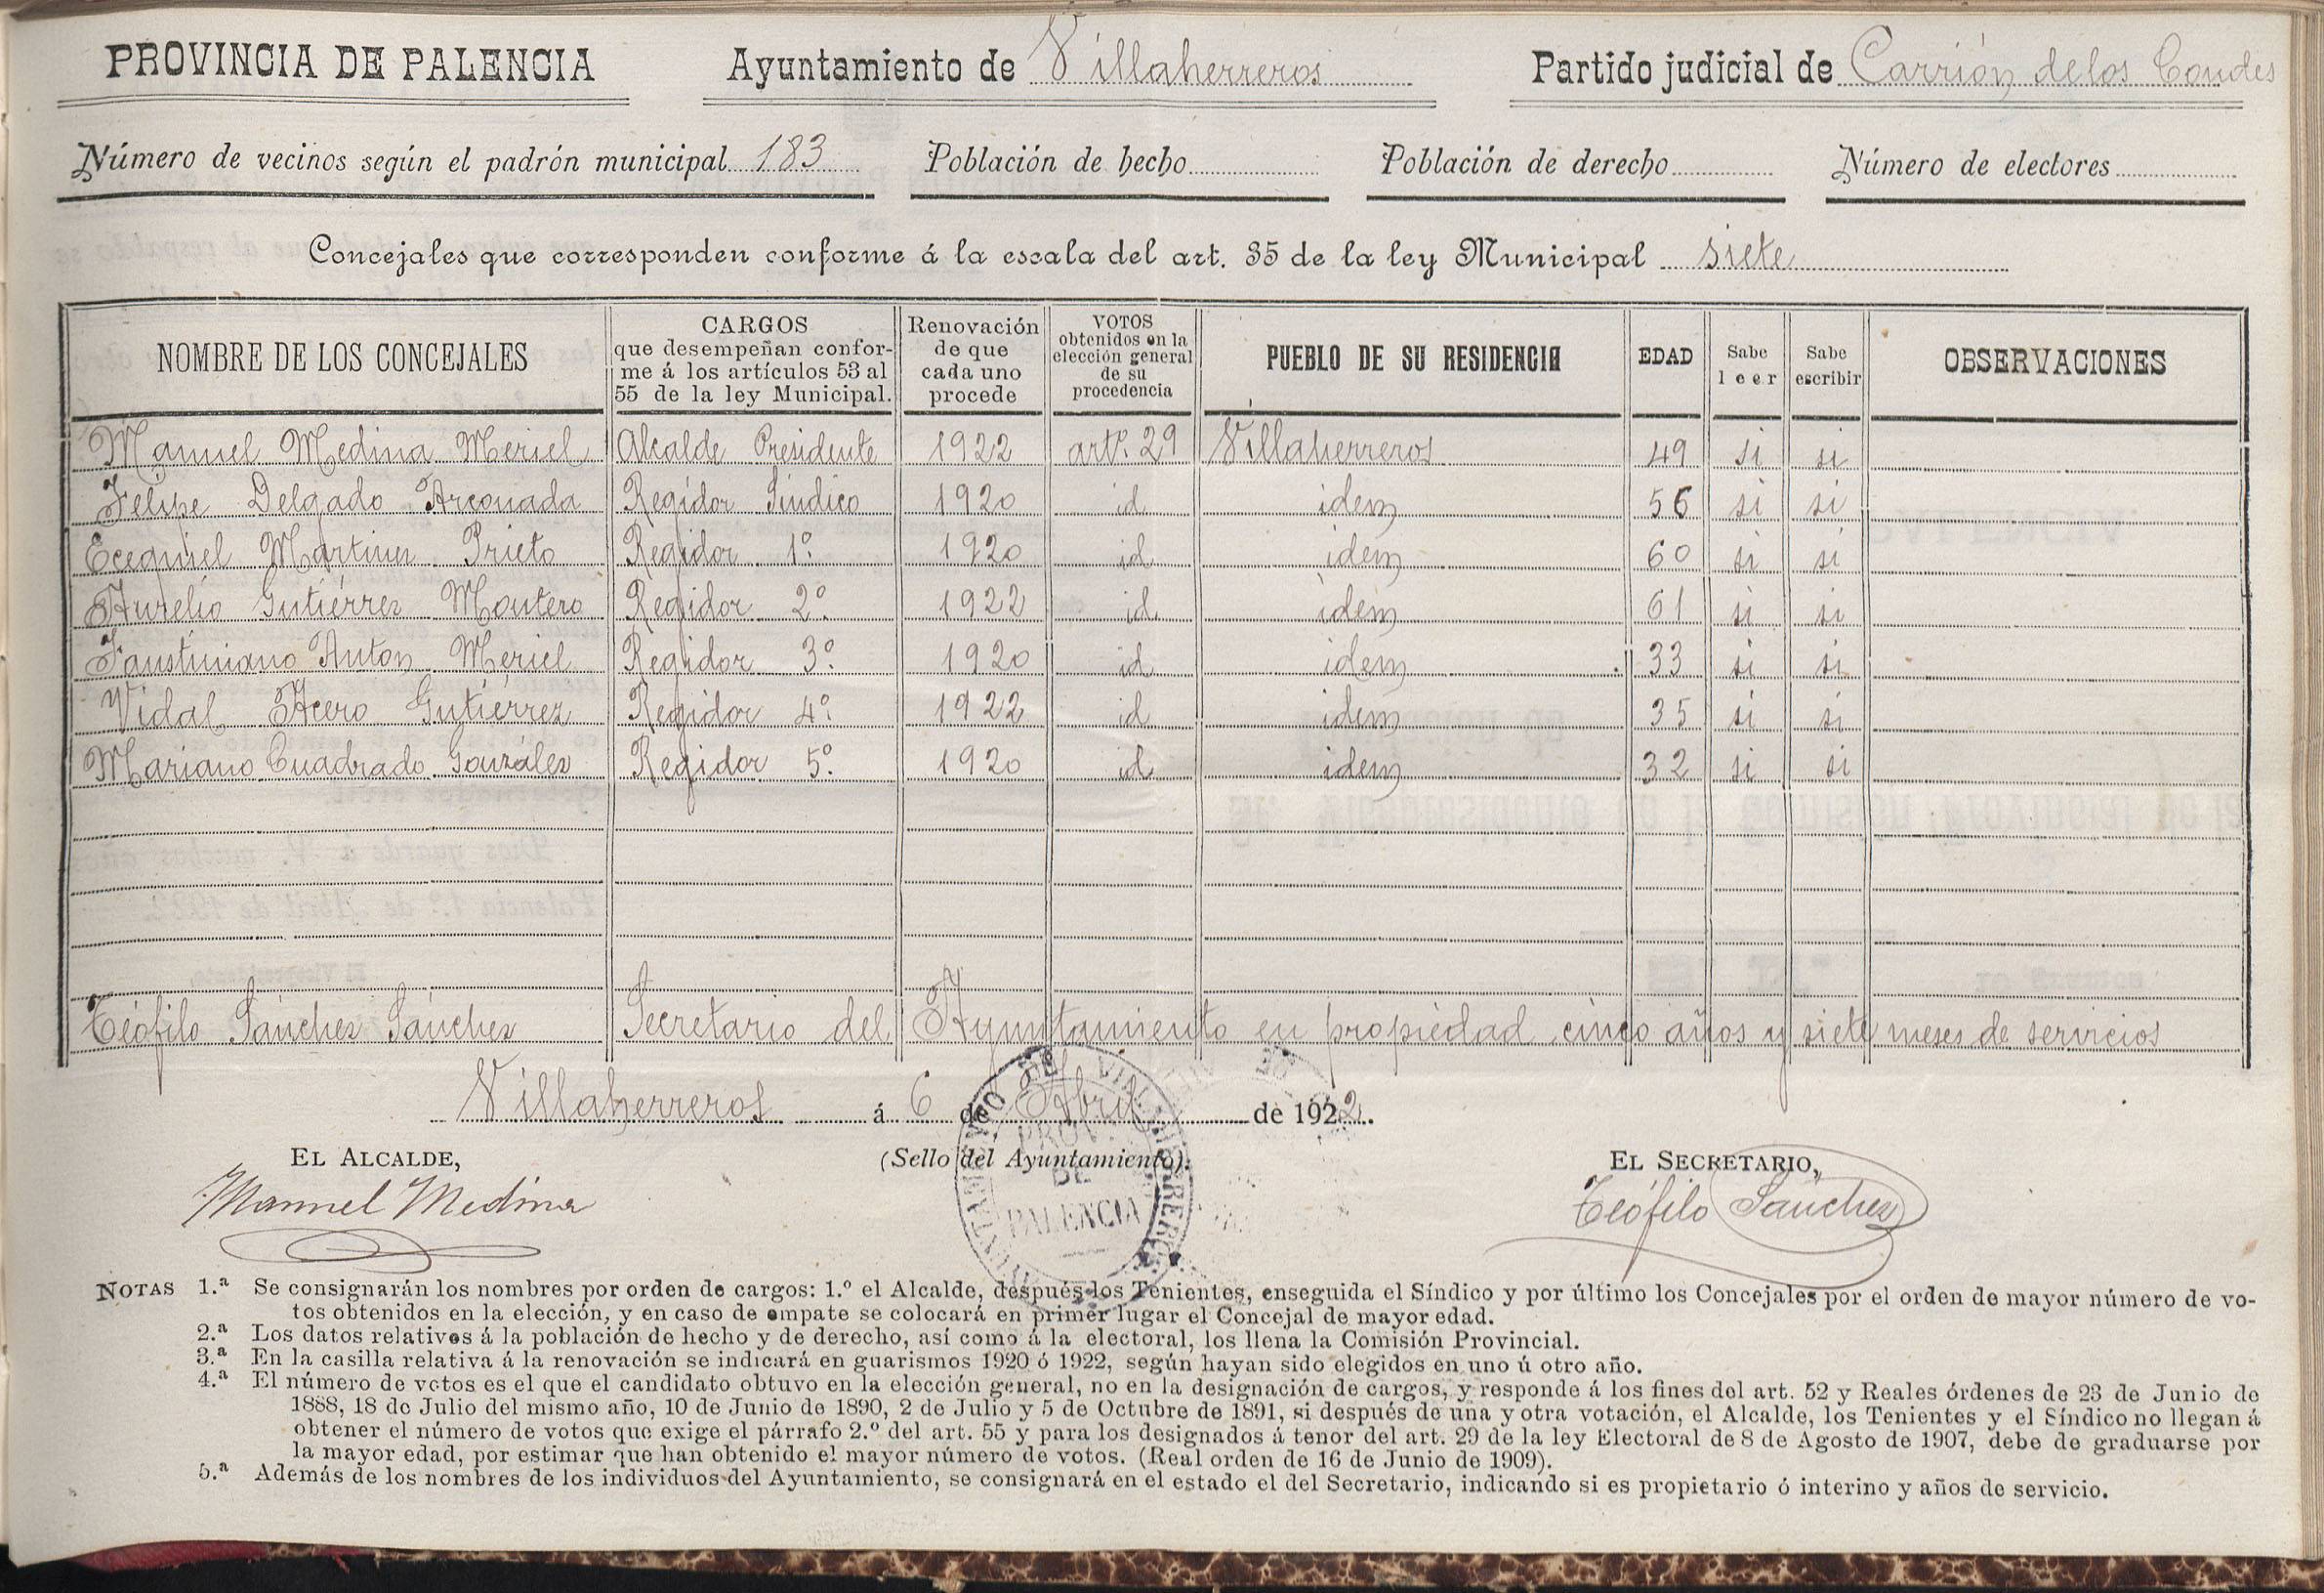 PROVINCIA DE PALENCIA Ayuntamiento de Villaherreros Partido judicial de Carrión de los Condes
Número de vecinos según el padrón municipal 183 Población de hecho Población de derecho Número de electores
Concejales que corresponden conforme á la escala del art. 35 de la ley Municipal siete
NOMBRE DE LOS CONCEJALES
CARGOS
que desempeñan confor-
me á los artículos 53 al
55 de la ley Municipal.
Renovación
de que
cada uno
procede
VOTOS
obtenidos en la
elección general
de su
procedencia
PUEBLO DE SU RESIDENCIA
EDAD
Sabe
leer
Sabe
escribir
OBSERVACIONES
Manuel Medina Meriel Alcalde Presidente 1922 artº. 29 Villaherreros 49 si si
Felipe Delgado Arconada Regidor Sindico 1920 id idem 56 si si
Ecequiel Martinez Prieto Regidor 1º. 1920 id idem 60 si si
Aurelio Gutiérrez Montero Regidor 2º 1922 id idem 61 si si
Faustiniano Antón Meriel Regidor 3º. 1920 id idem 33 si si
Vidal Acero Gutiérrez Regidor 4º. 1922 id idem 35 si si
Mariano Cuadrado González Regidor 5º. 1920 id idem 32 si si
Teófilo Sánchez Sánchez Secretario del Ayuntamiento en propiedad, cinco años y siete meses de servicios
Villaherreros á 6 de Abril de 1922.
EL ALCALDE, (Sello del Ayuntamiento). EL SECRETARIO,
Manuel Medina Teófilo Sánchez
PROV.
DE
PALENCIA
NOTAS 1.ª Se consignarán los nombres por orden de cargos: 1.º el Alcalde, después los Tenientes, enseguida el Síndico y por último los Concejales por el orden de mayor número de vo-
tos obtenidos en la elección, y en caso de empate se colocará en primer lugar el Concejal de mayor edad.
2.ª Los datos relativos á la población de hecho y de derecho, así como á la electoral, los llena la Comisión Provincial.
3.ª En la casilla relativa á la renovación se indicará en guarismos 1920 ó 1922, según hayan sido elegidos en uno ú otro año.
4.ª El número de votos es el que el candidato obtuvo en la elección general, no en la designación de cargos, y responde á los fines del art. 52 y Reales órdenes de 23 de Junio de
1888, 18 de Julio del mismo año, 10 de Junio de 1890, 2 de Julio y 5 de Octubre de 1891, si después de una y otra votación, el Alcalde, los Tenientes y el Síndico no llegan á
obtener el número de votos que exige el párrafo 2.º del art. 55 y para los designados á tenor del art. 29 de la ley Electoral de 8 de Agosto de 1907, debe de graduarse por
la mayor edad, por estimar que han obtenido el mayor número de votos. (Real orden de 16 de Junio de 1909).
5.ª Además de los nombres de los individuos del Ayuntamiento, se consignará en el estado el del Secretario, indicando si es propietario ó interino y años de servicio.